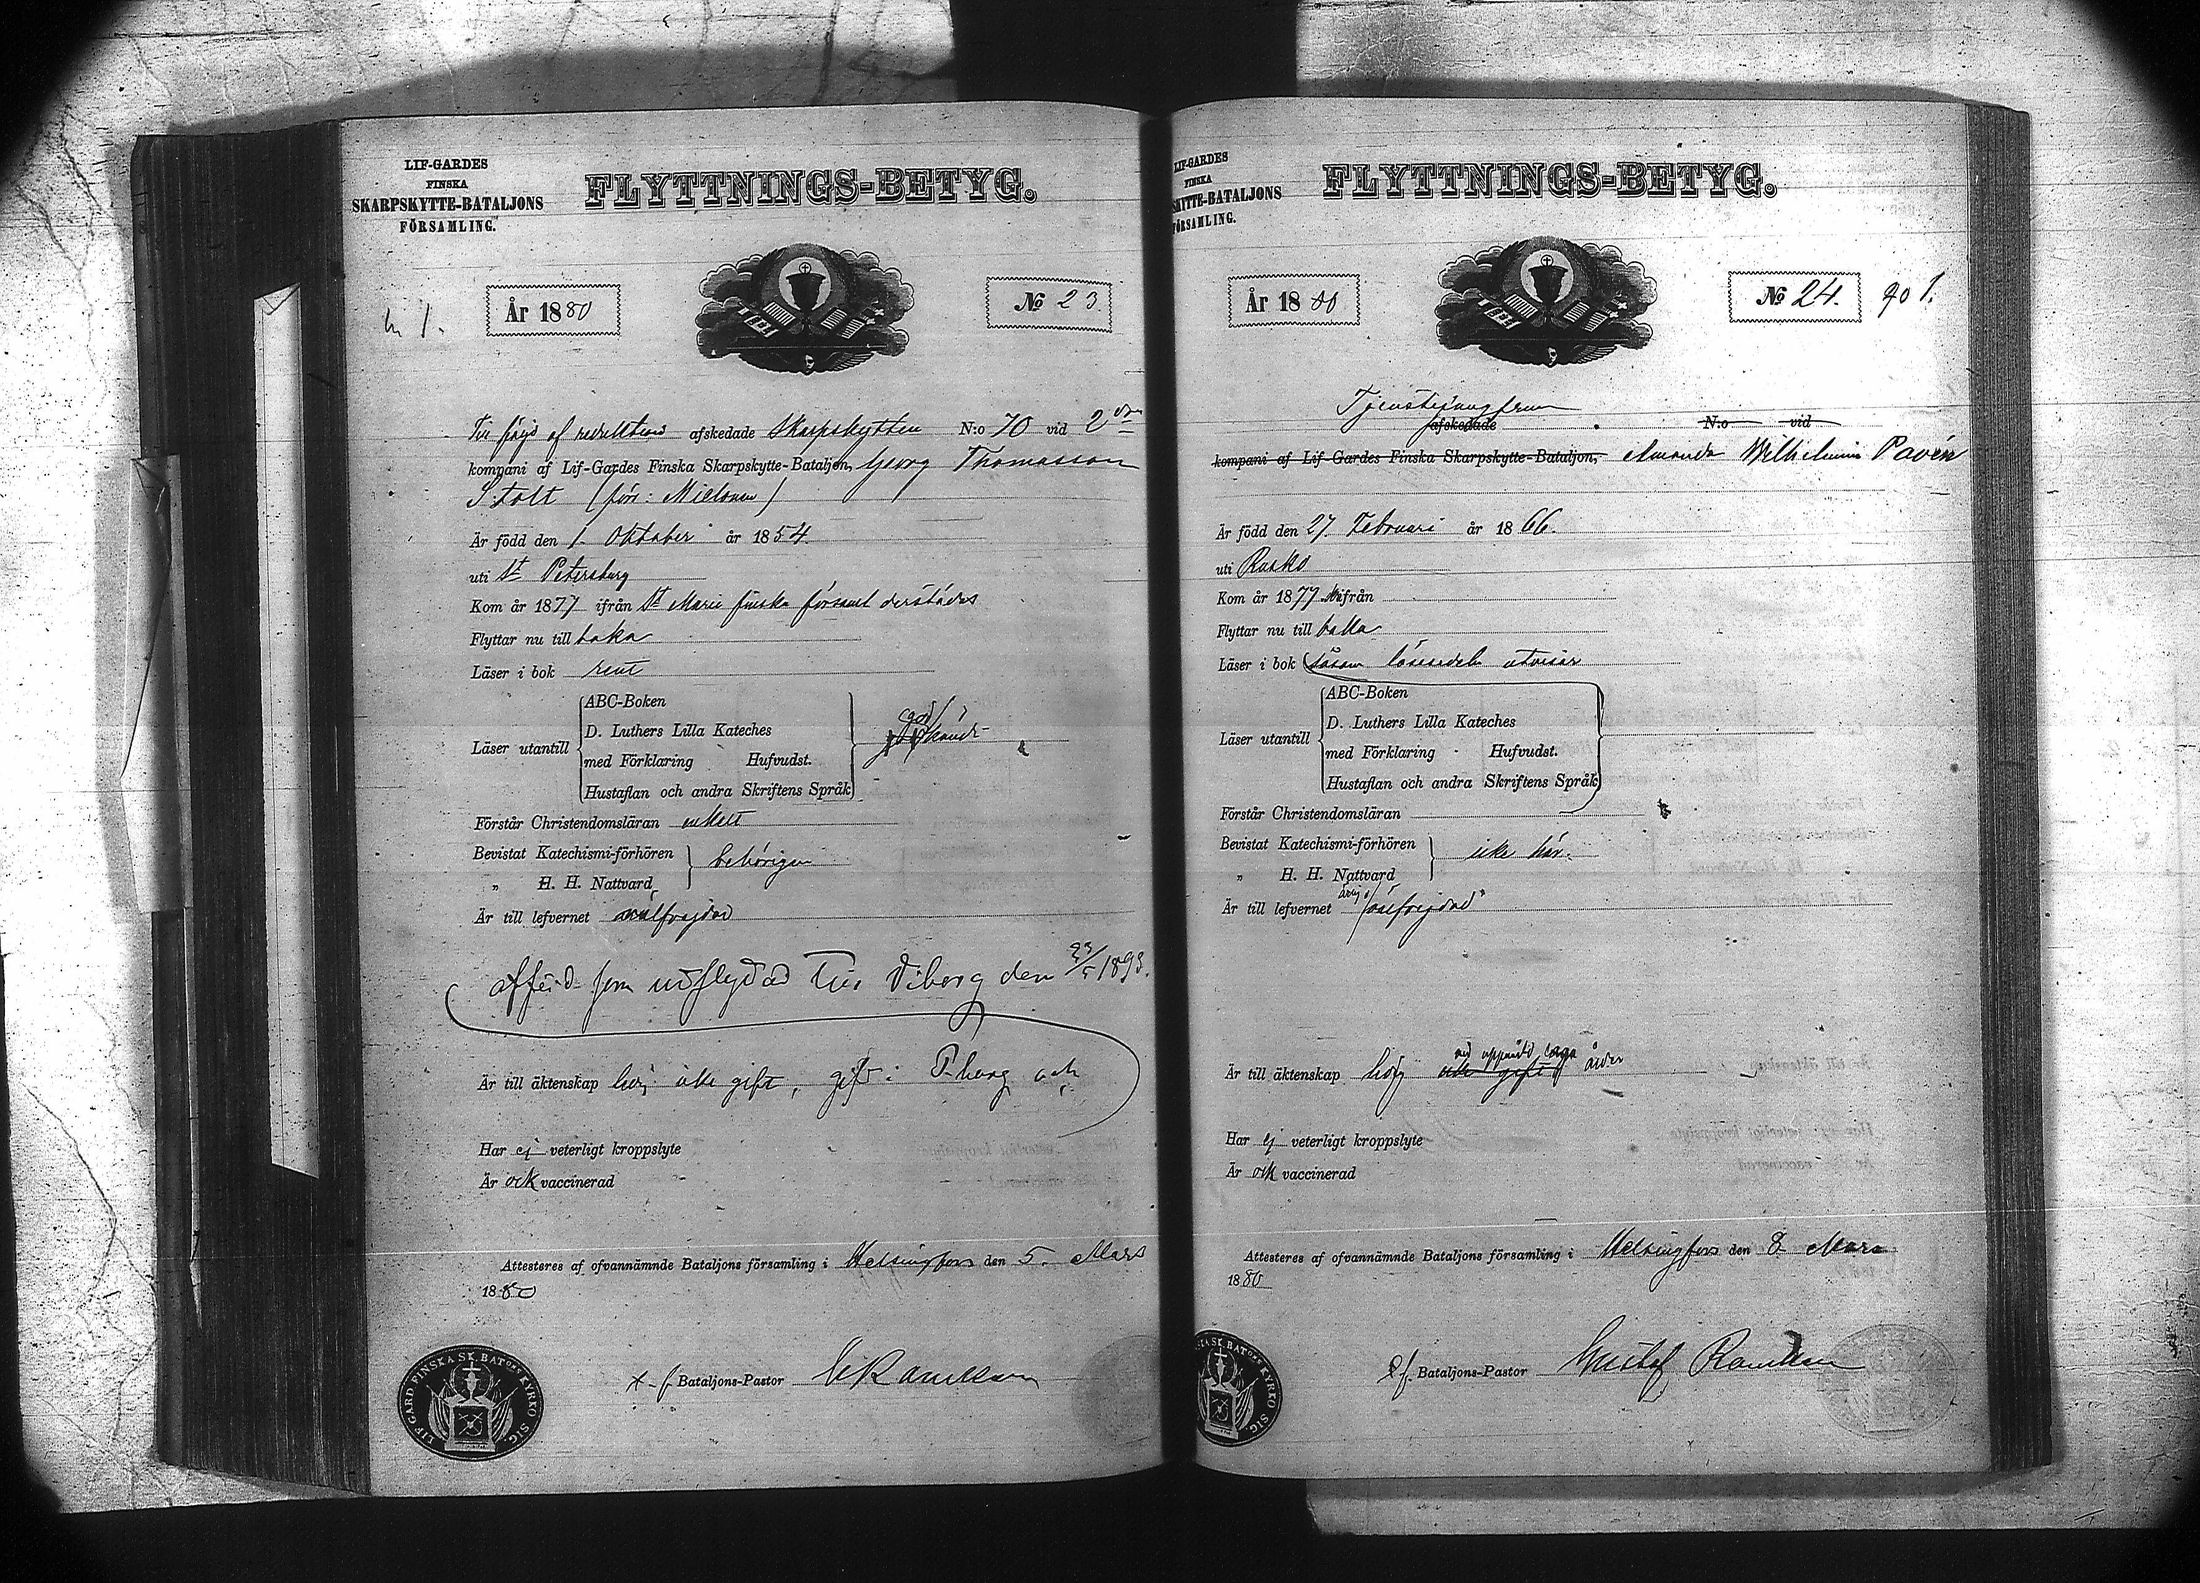 LIF-GARDES
FINSKA
SKARPSKYTTE-BATALJONS
FÖRSAMLING.
FLYTTNINGS-BETYG.
1.
År 1880
No 23.
Till följd af afskedade Skarpskytten N:o 70 vid 2dra
kompani af Lif-Gardes Finska Skarpskytte-Bataljon, Georg Thomasson
Stolt (förr:
Är född den 1. Oktober år 1854.
uti St Petersburg
Kom år 1877 ifrån St Marie finska församl derstädes
Flyttar nu till baka
Läser i bok rent
Läser utantill
ABC-Boken
D. Luthers Lilla Kateches
med Förklaring Hufvudst.
Hustaflan och andra Skriftens Språk
Förstår Christendomsläran enkelt
Bevistat Katechismi-förhören
„ H. H. Nattvard
behörigen
Är till lefvernet välfrejdad
afförd som utflyttad till Viborg den 23/5 1893.
Är till äktenskap ledig icke gift, gift i P-borg och
Har ej veterligt kroppslyte
Är ock vaccinerad
Attesteras af ofvannämnde Bataljons församling i Helsingfors den 5. Mars
1880
Bataljons-Pastor
LIF GARD FINSKA SK. BATons KYRKO SIG.
LIF-GARDES
FINSKA
SKYTTE-BATALJONS
FÖRSAMLING.
FLYTTNINGS-BETYG.
År 1880
No 24.
901.
Tjenstejungfrun
afskedade N:o vid
kompani af Lif-Gardes Finska Skarpskytte-Bataljon, Amanda Wilhelmina Pavén
Är född den 27. Februari år 1866.
uti Rusko
Kom år 1877 ifrån
Flyttar nu till baka
Läser i bok såsom utvisar
Läser utantill
ABC-Boken
D. Luthers Lilla Kateches
med Förklaring Hufvudst.
Hustaflan och andra Skriftens Språk
Förstår Christendomsläran
Bevistat Katechismi-förhören
„ H. H. Nattvard
icke här.
Är till lefvernet välfrejdad
Är till äktenskap ledig vid uppnådd laga ålder
icke gift
Har ej veterligt kroppslyte
Är ock vaccinerad
Attesteras af ofvannämnde Bataljons församling i Helsingfors den 8 Mars
1880
Bataljons-Pastor Gustaf
SKA SK. BATons KYRKO SIG.